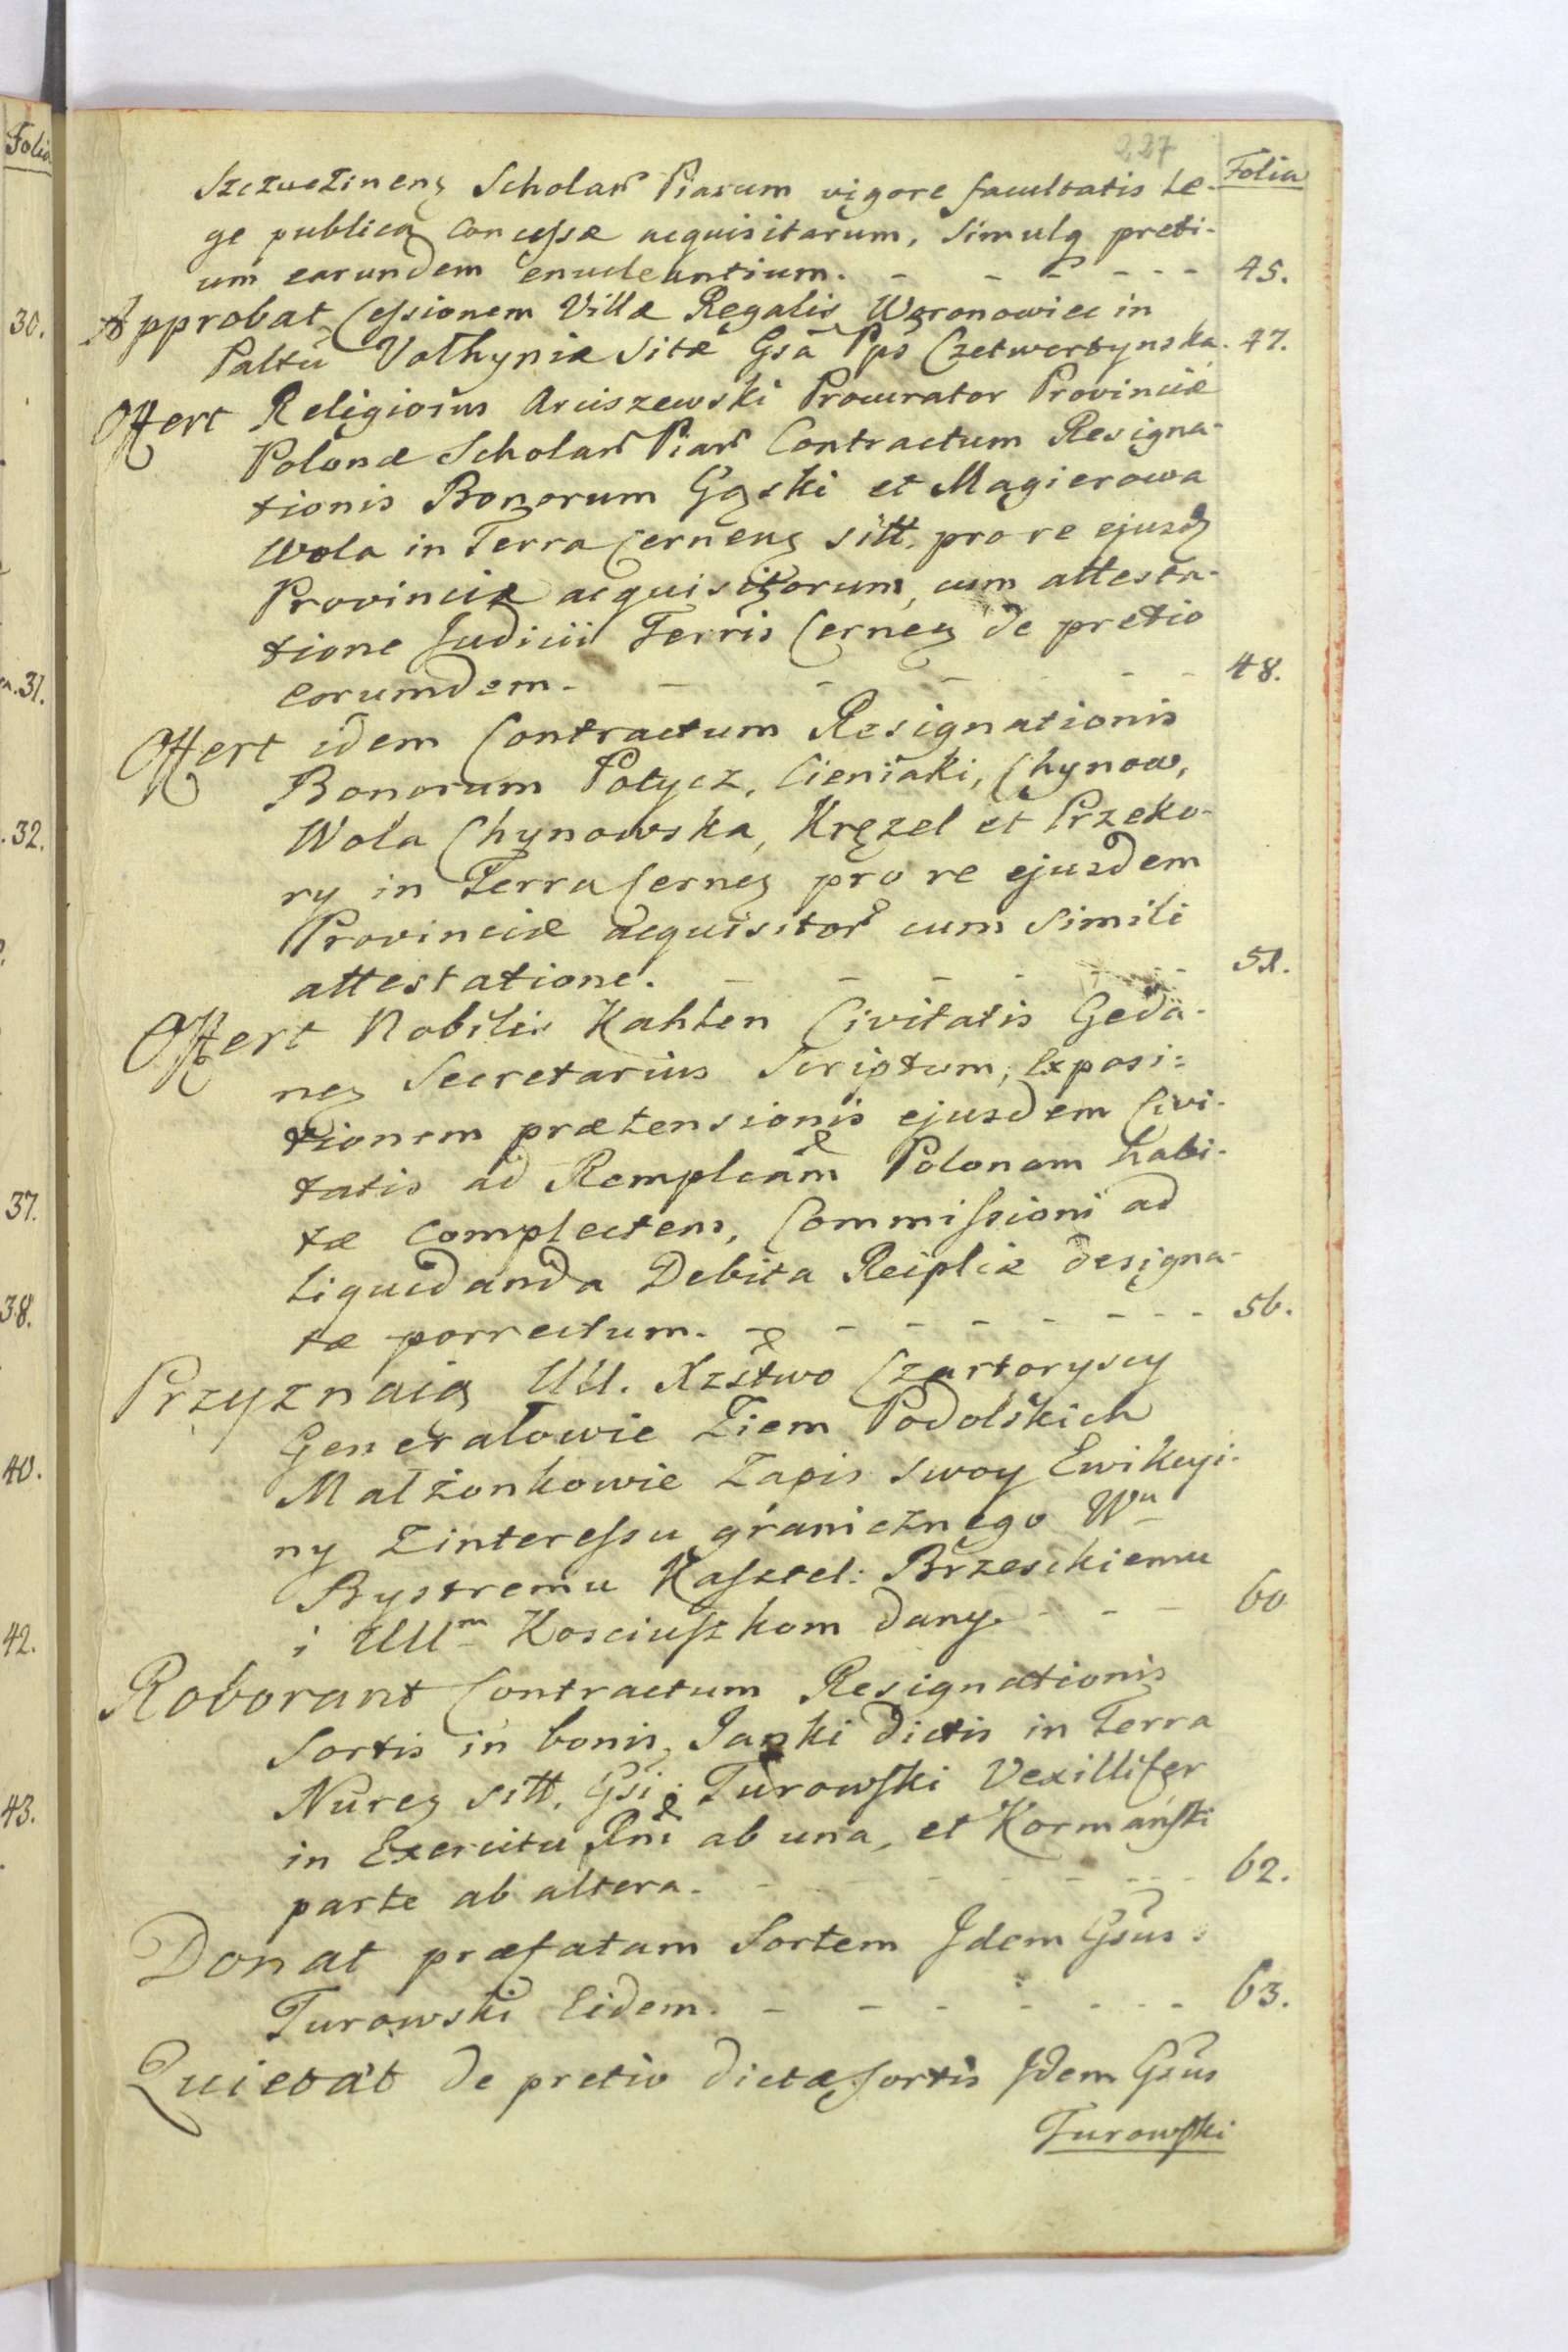 227
Folia
Szczuczinenς Scholar Piarum vigore facultatis Le-
ge publica Concessæ acquisitarum, Simulq preti-
um earundem enucleantium. - - - - - - 45.
Approbat Cessionem Villæ Regalis Woronowiec in
Paltu Volhyniæ Sitæ Gsa Pps Czetwertynska. 47.
Offert Religiosus Arciszewski Procurator Provinciæ
Polonæ Scholar Piar Contractum Resigna-
tionis Bonorum Gąski et Magierowa
Wola in Terra Cernenς sitt. pro re ejusdς
Provinciæ acquisitorum, cum attesta-
tione Judicii Terris Cerneς de pretio
eorumdem. - - - - - - 48.
Offert idem Contractum Resignationis
Bonorum Potycz, Cieniaki, Chynow,
Wola Chynowska, Kręzel et Przeko-
ry in Terra Cerneς pro re ejusdem
Provinciæ acquisitor cum Simili
attestatione. - - - - - - - 51.
Offert Nobilis Kahlen Civitatis Geda-
neς Secretarius Scriptum, Exposi=
tionem prætensionis ejusdem Civi-
tatis ad Rempleam Polonam habi-
tæ complectens, Commissioni ad
liquidanda Debita Reiplicæ designa-
tæ porrectum. - - - - - - - - 56.
Przyznaią UU. Xzstwo Czartoryscy
Generałowie Ziem Podolskich
Małżonkowie Zapis swoy Ewikcyi-
ny Zinteressu granicznego Wu
Bystremu Kasztel: Brzesckiemu
i UUm Kosciuszkom dany. - - - 60
Roborant Contractum Resignationis
Sortis in bonis Janki dictis in Terra
Nureς sitt. Gsi: Turowski Vexillifer
in Exercitu Rni ab una, et Kormański
parte ab altera. - - - - - - - - 62.
Donat præfatam Sortem Jdem Gsus:
Turowski Eidem. - - - - - - - 63.
Quietat de pretio dictæ sortis Jdem Gsus
Turowski
Folia
30.
31.
32.
37.
38.
40.
42.
43.